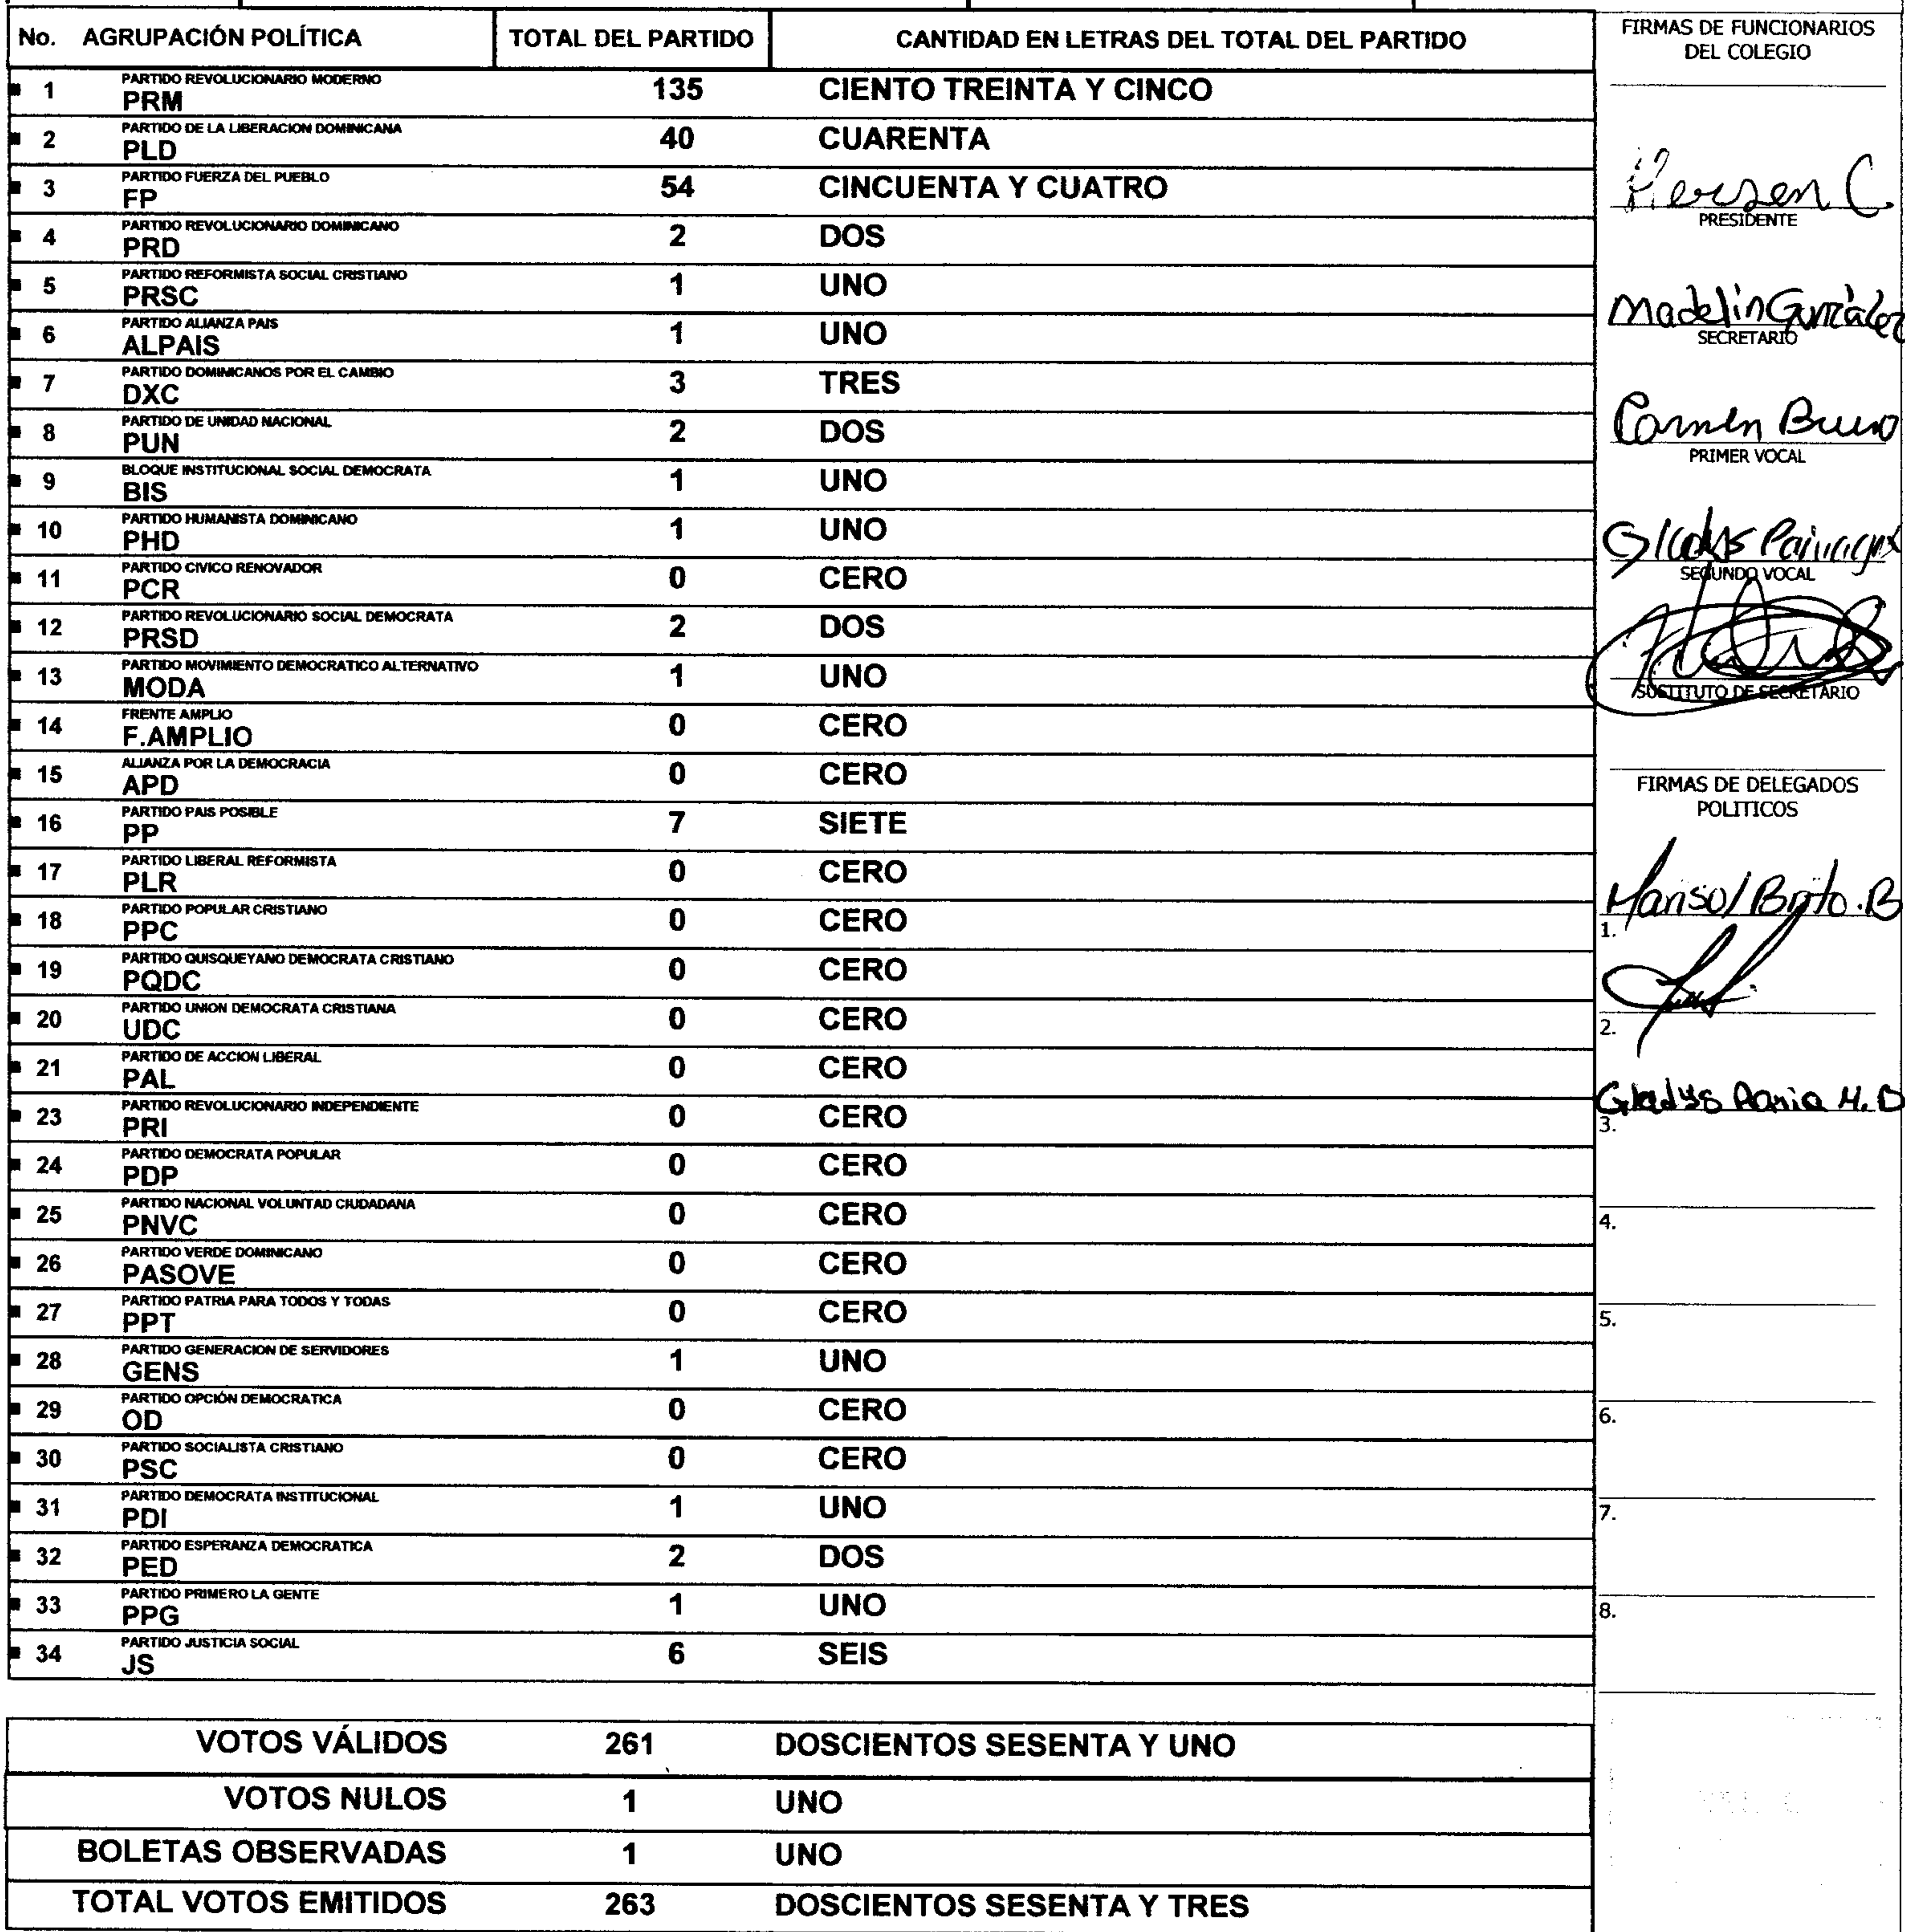 No. AGRUPACIÓN POLÍTICA TOTAL DEL PARTIDO CANTIDAD EN LETRAS DEL TOTAL DEL PARTIDO
1 PARTIDO REVOLUCIONARIO MODERNO
PRM 135 CIENTO TREINTA Y CINCO
2 PARTIDO DE LA LIBERACION DOMINICANA
PLD 40 CUARENTA
3 PARTIDO FUERZA DEL PUEBLO
FP 54 CINCUENTA Y CUATRO
4 PARTIDO REVOLUCIONARIO DOMINICANO
PRD 2 DOS
5 PARTIDO REFORMISTA SOCIAL CRISTIANO
PRSC 1 UNO
6 PARTIDO ALIANZA PAIS
ALPAIS 1 UNO
7 PARTIDO DOMINICANOS POR EL CAMBIO
DXC 3 TRES
8 PARTIDO DE UNIDAD NACIONAL
PUN 2 DOS
9 BLOQUE INSTITUCIONAL SOCIAL DEMOCRATA
BIS 1 UNO
10 PARTIDO HUMANISTA DOMINICANO
PHD 1 UNO
11 PARTIDO CIVICO RENOVADOR
PCR 0 CERO
12 PARTIDO REVOLUCIONARIO SOCIAL DEMOCRATA
PRSD 2 DOS
13 PARTIDO MOVIMIENTO DEMOCRATICO ALTERNATIVO
MODA 1 UNO
14 FRENTE AMPLIO
F.AMPLIO 0 CERO
15 ALIANZA POR LA DEMOCRACIA
APD 0 CERO
16 PARTIDO PAIS POSIBLE
PP 7 SIETE
17 PARTIDO LIBERAL REFORMISTA
PLR 0 CERO
18 PARTIDO POPULAR CRISTIANO
PPC 0 CERO
19 PARTIDO QUISQUEYANO DEMOCRATA CRISTIANO
PQDC 0 CERO
20 PARTIDO UNION DEMOCRATA CRISTIANA
UDC 0 CERO
21 PARTIDO DE ACCION LIBERAL
PAL 0 CERO
23 PARTIDO REVOLUCIONARIO INDEPENDIENTE
PRI 0 CERO
24 PARTIDO DEMOCRATA POPULAR
PDP 0 CERO
25 PARTIDO NACIONAL VOLUNTAD CIUDADANA
PNVC 0 CERO
26 PARTIDO VERDE DOMINICANO
PASOVE 0 CERO
27 PARTIDO PATRIA PARA TODOS Y TODAS
PPT 0 CERO
28 PARTIDO GENERACION DE SERVIDORES
GENS 1 UNO
29 PARTIDO OPCIÓN DEMOCRATICA
OD 0 CERO
30 PARTIDO SOCIALISTA CRISTIANO
PSC 0 CERO
31 PARTIDO DEMOCRATA INSTITUCIONAL
PDI 1 UNO
32 PARTIDO ESPERANZA DEMOCRATICA
PED 2 DOS
33 PARTIDO PRIMERO LA GENTE
PPG 1 UNO
34 PARTIDO JUSTICIA SOCIAL
JS 6 SEIS
VOTOS VÁLIDOS 261 DOSCIENTOS SESENTA Y UNO
VOTOS NULOS 1 UNO
BOLETAS OBSERVADAS 1 UNO
TOTAL VOTOS EMITIDOS 263 DOSCIENTOS SESENTA Y TRES
FIRMAS DE FUNCIONARIOS
DEL COLEGIO
PRESIDENTE
Madelin González
SECRETARIO
Carmen Bruno
PRIMER VOCAL
Gladys
SEGUNDO VOCAL
SUSTITUTO DE SECRETARIO
FIRMAS DE DELEGADOS
POLITICOS
Marisol Brito.B
1.
2.
Gladys M.D
3.
4.
5.
6.
7.
8.